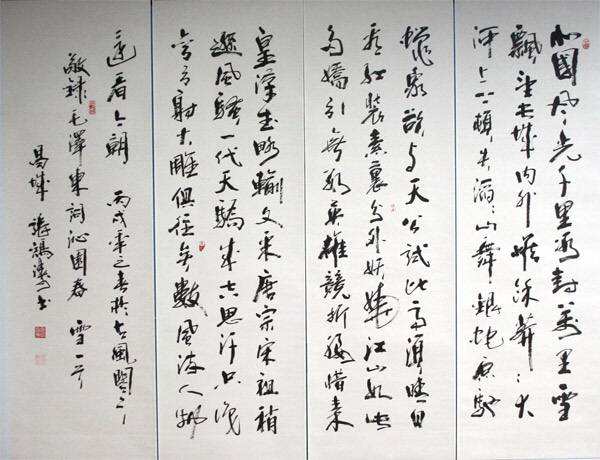 北國風光千里冰封萬里雪
飄望長城内外惟餘莽〻大
河上下頓失滔〻山舞銀蛇原馳
蠟象欲与天公試比高須晴日
看紅裝素裹分外妖嬈江山如此
多嬌引無數英雄競折腰惜秦
皇漢武略輸文采唐宗宋祖稍
遜風騷一代天驕成吉思汗只識
彎弓射大雕俱往矣數風流人物
還看今朝 丙戌年之春於古風閣
敬錄毛澤東詞沁園春 雪一首
書